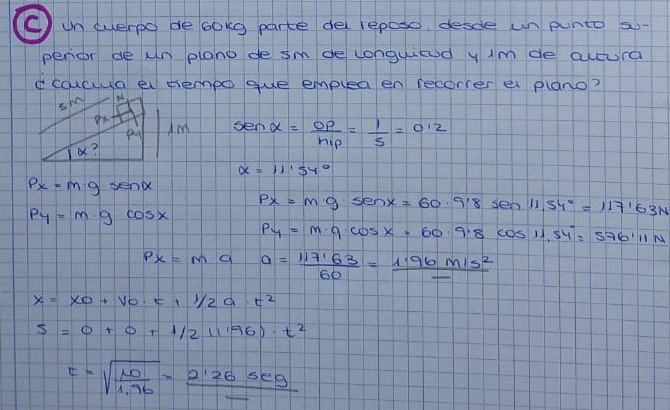 C) Un cuerpo de 60kg parte del reposo, desde un punto su-
perior de un plano de 5m de longuitud y 1m de altura
¿calcula el tiempo que emplea en recorrer el plano?
5m N Px Py 1m α?
sen α = op/hip = 1/5 = 0'2
α = 11'54°
Px = m·g senα
Py = m·g cosx
Px = m·g·senx = 60·9'8 sen 11,54° = 117'63N
Py = m·g cosx = 60·9'8 cos 11,54° = 576'11N
Px = m·a a = 117'63/60 = 1'96 m/s²
x = x0 + v0·t + 1/2 a·t²
5 = 0 + 0 + 1/2 (1'96)·t²
t = √10/1.96 = 2'26 seg